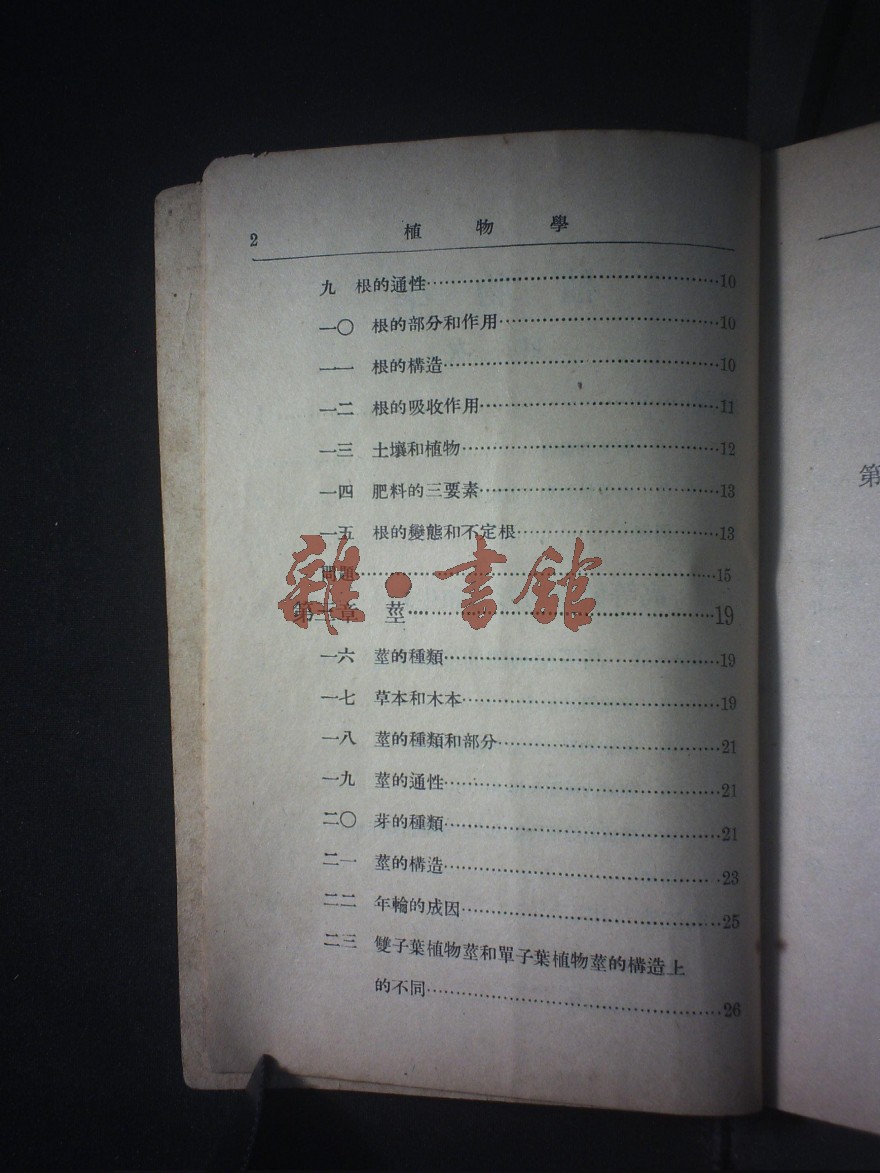 2 植物學
九 根的通性⋯⋯⋯⋯⋯⋯10
一〇 根的部分和作用⋯⋯⋯⋯⋯⋯10
一一 根的構造⋯⋯⋯⋯⋯⋯10
一二 根的吸收作用⋯⋯⋯⋯⋯⋯11
一三 土壤和植物⋯⋯⋯⋯⋯⋯12
一四 肥料的三要素⋯⋯⋯⋯⋯⋯13
一五 根的變態和不定根⋯⋯⋯⋯⋯⋯13
問題⋯⋯⋯⋯⋯⋯15
第三章 莖⋯⋯⋯⋯⋯⋯19
一六 莖的種類⋯⋯⋯⋯⋯⋯19
一七 草本和木本⋯⋯⋯⋯⋯⋯19
一八 莖的種類和部分⋯⋯⋯⋯⋯⋯21
一九 莖的通性⋯⋯⋯⋯⋯⋯21
二〇 芽的種類⋯⋯⋯⋯⋯⋯21
二一 莖的構造⋯⋯⋯⋯⋯⋯23
二二 年輪的成因⋯⋯⋯⋯⋯⋯25
二三 雙子葉植物莖和單子葉植物莖的構造上
的不同⋯⋯⋯⋯⋯⋯26
雜·書館
第